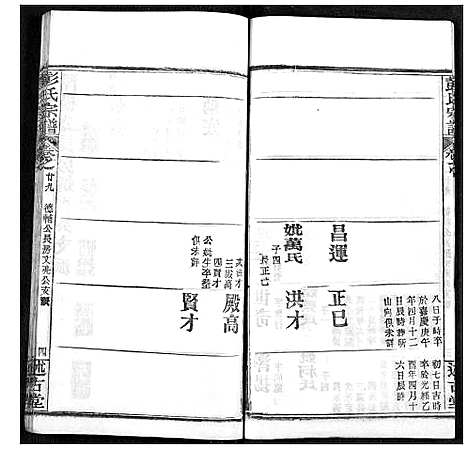 彭氏宗譜
八日子時卒
於嘉慶庚午
年四月十二
日辰時葬所
山向俱未詳
初七日吉時
卒於光緒乙
酉年四月十
六日辰時
昌運
正巳
妣萬氏
子四
長正巳
洪才
三殿高
四賢才
殿高
公妣生卒葬
俱未詳
賢才
述古堂
彭氏宗譜
卷
廿九
德輔公長房文光公支
四
述古堂